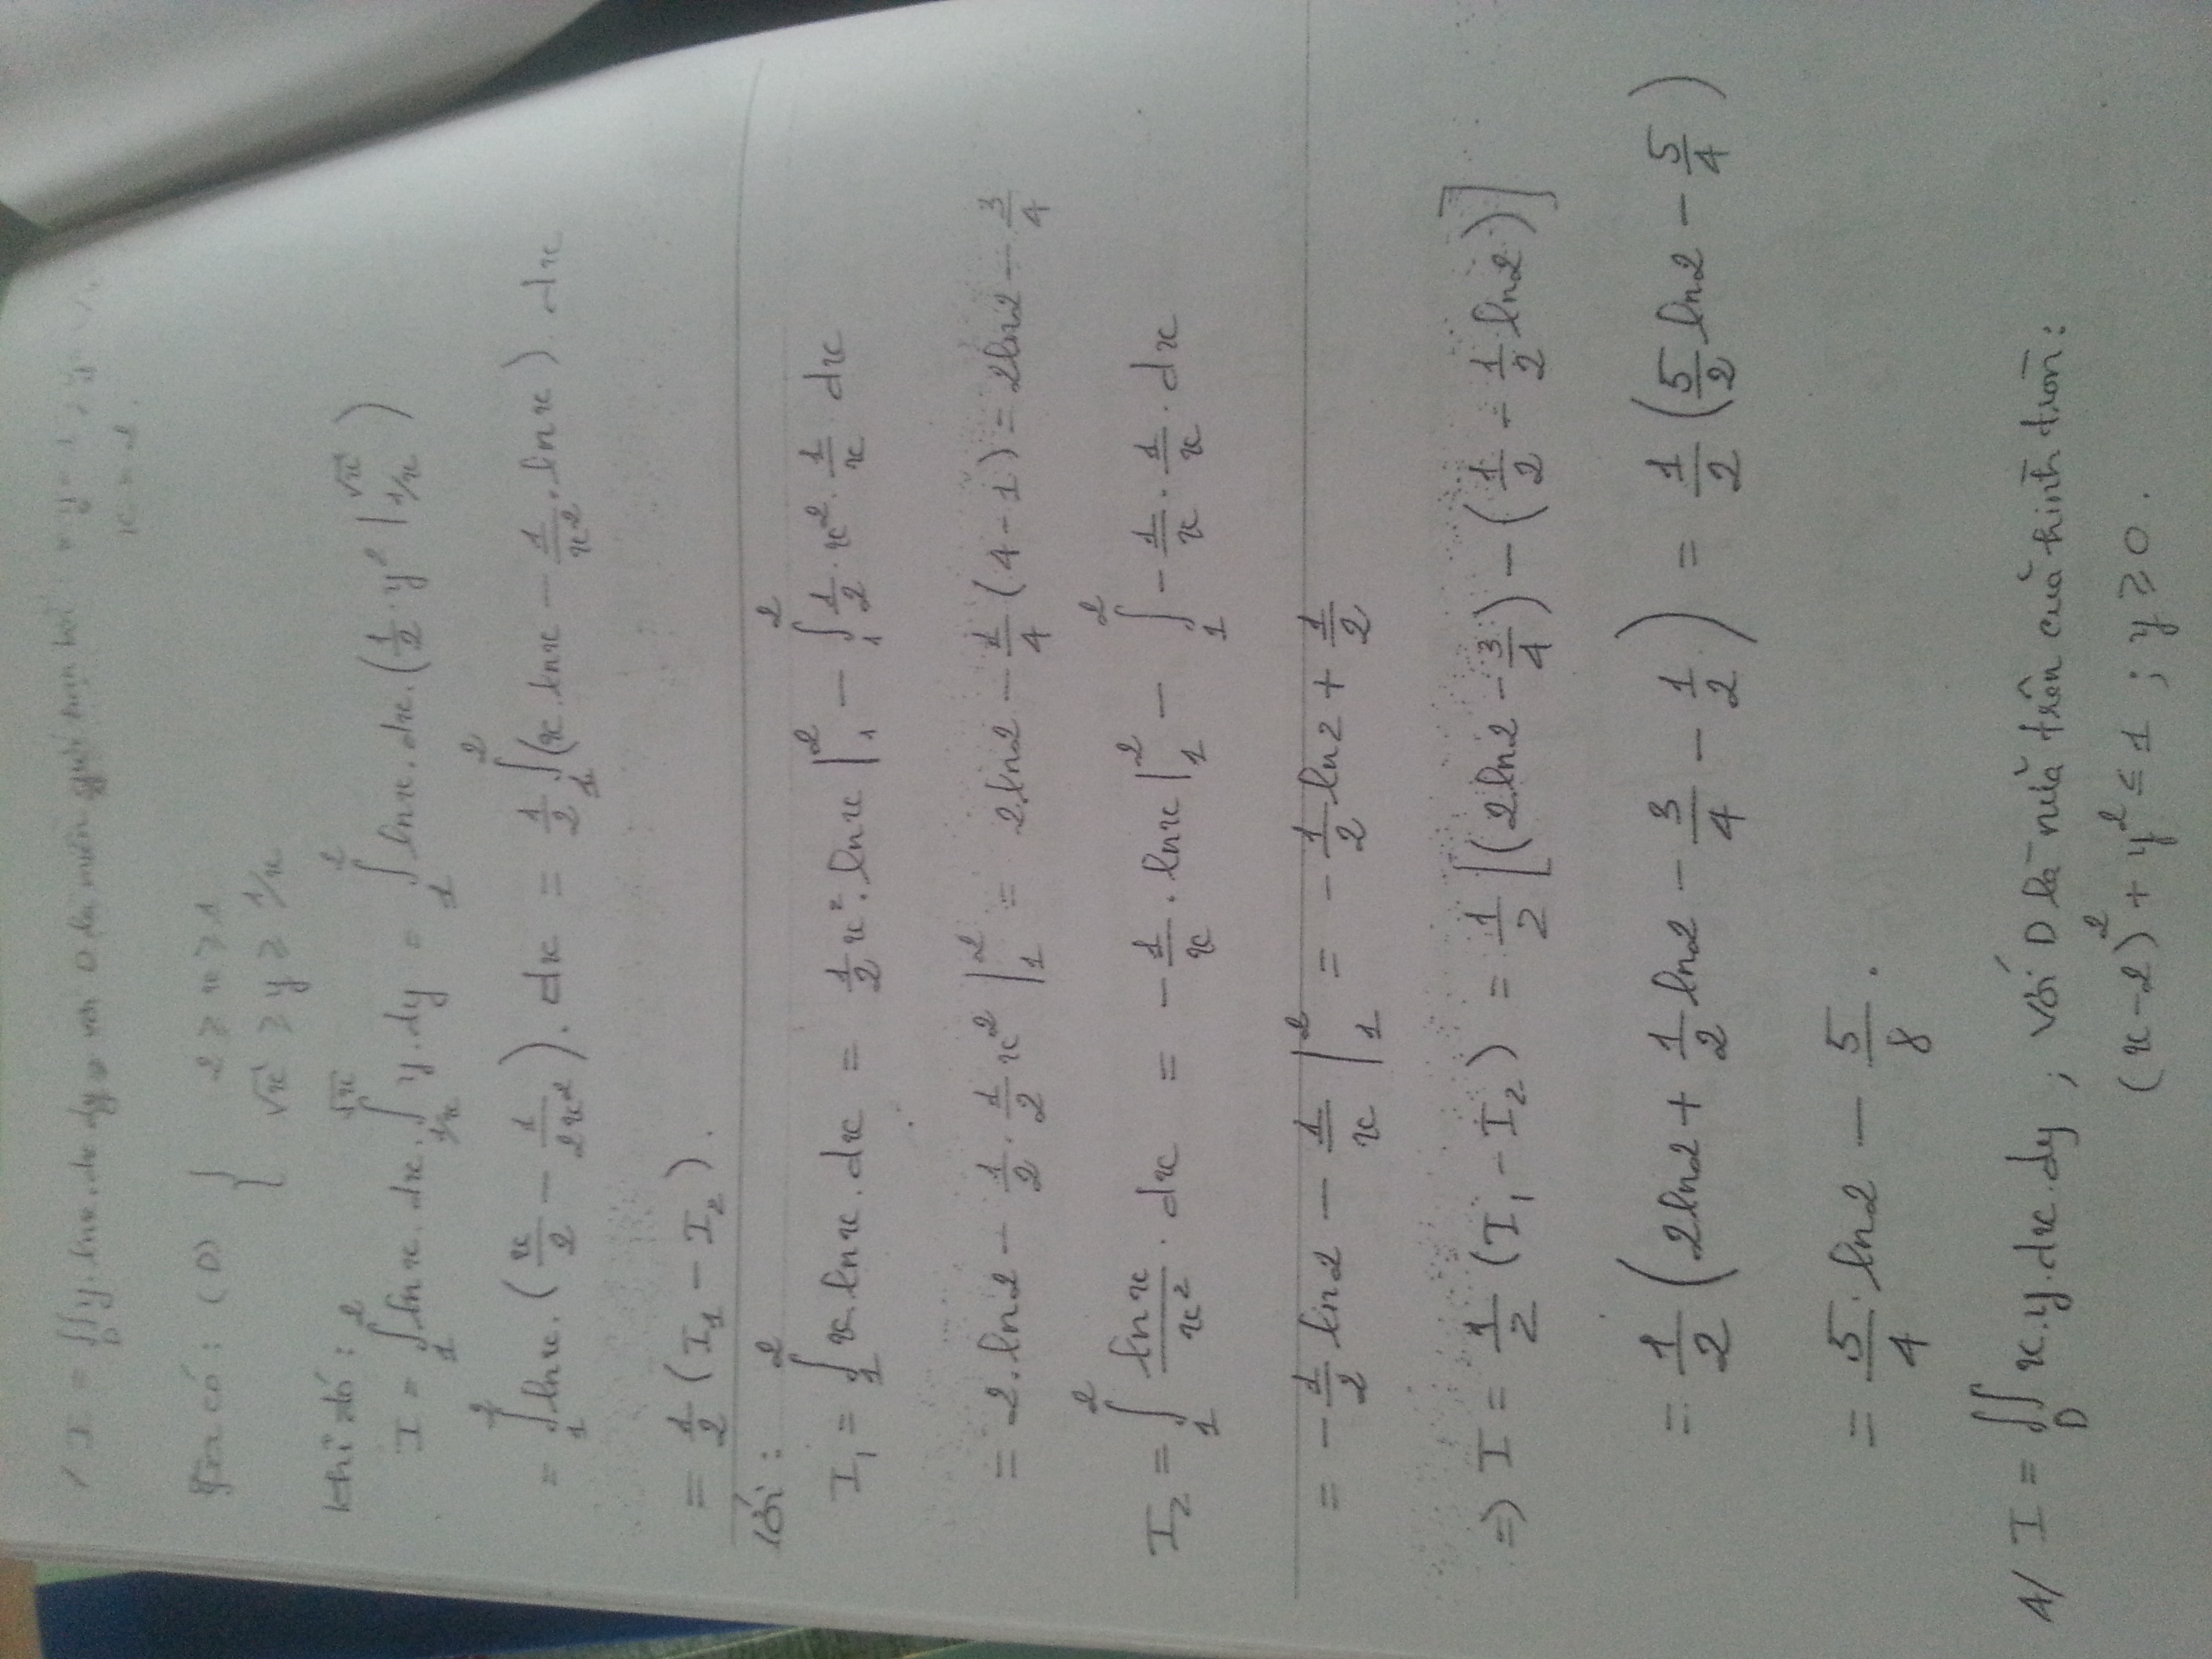 / I = ∬_D y. lnx. dx dy, với D là miền giới hạn bởi : x.y = 1 ;
x = 2.
Ta có : (D) { 2 ⩾ x ⩾ 1
√x ⩾ y ⩾ 1/x
Khi đó :
I = ∫_1^2 lnx. dx. ∫_{1/x}^{√x} y. dy = ∫_1^2 lnx. dx. (1/2 . y² |_{1/x}^{√x})
= ∫_1^2 lnx. (x/2 - 1/2x²). dx = 1/2 ∫_1^2 (x. lnx - 1/x² . lnx). dx
= 1/2 (I₁ - I₂).
Với :
I₁ = ∫_1^2 x. lnx. dx = 1/2 x². lnx |_1^2 - ∫_1^2 1/2 . x² . 1/x dx
= 2. ln2 - 1/2 . 1/2 x² |_1^2 = 2.ln2 - 1/4 (4-1) = 2ln2 - 3/4
I₂ = ∫_1^2 lnx/x² . dx = -1/x . lnx |_1^2 - ∫_1^2 -1/x . 1/x . dx
= -1/2 ln2 - 1/x |_1^2 = -1/2 ln2 + 1/2
=> I = 1/2 (I₁ - I₂) = 1/2 [(2ln2 - 3/4) - (1/2 - 1/2 ln2)]
= 1/2 (2ln2 + 1/2 ln2 - 3/4 - 1/2) = 1/2 (5/2 ln2 - 5/4)
= 5/4 . ln2 - 5/8 .
4/ I = ∬_D x.y.dx.dy ; với D là nửa trên của hình tròn :
(x-2)² + y² ≤ 1 ; y ⩾ 0 .